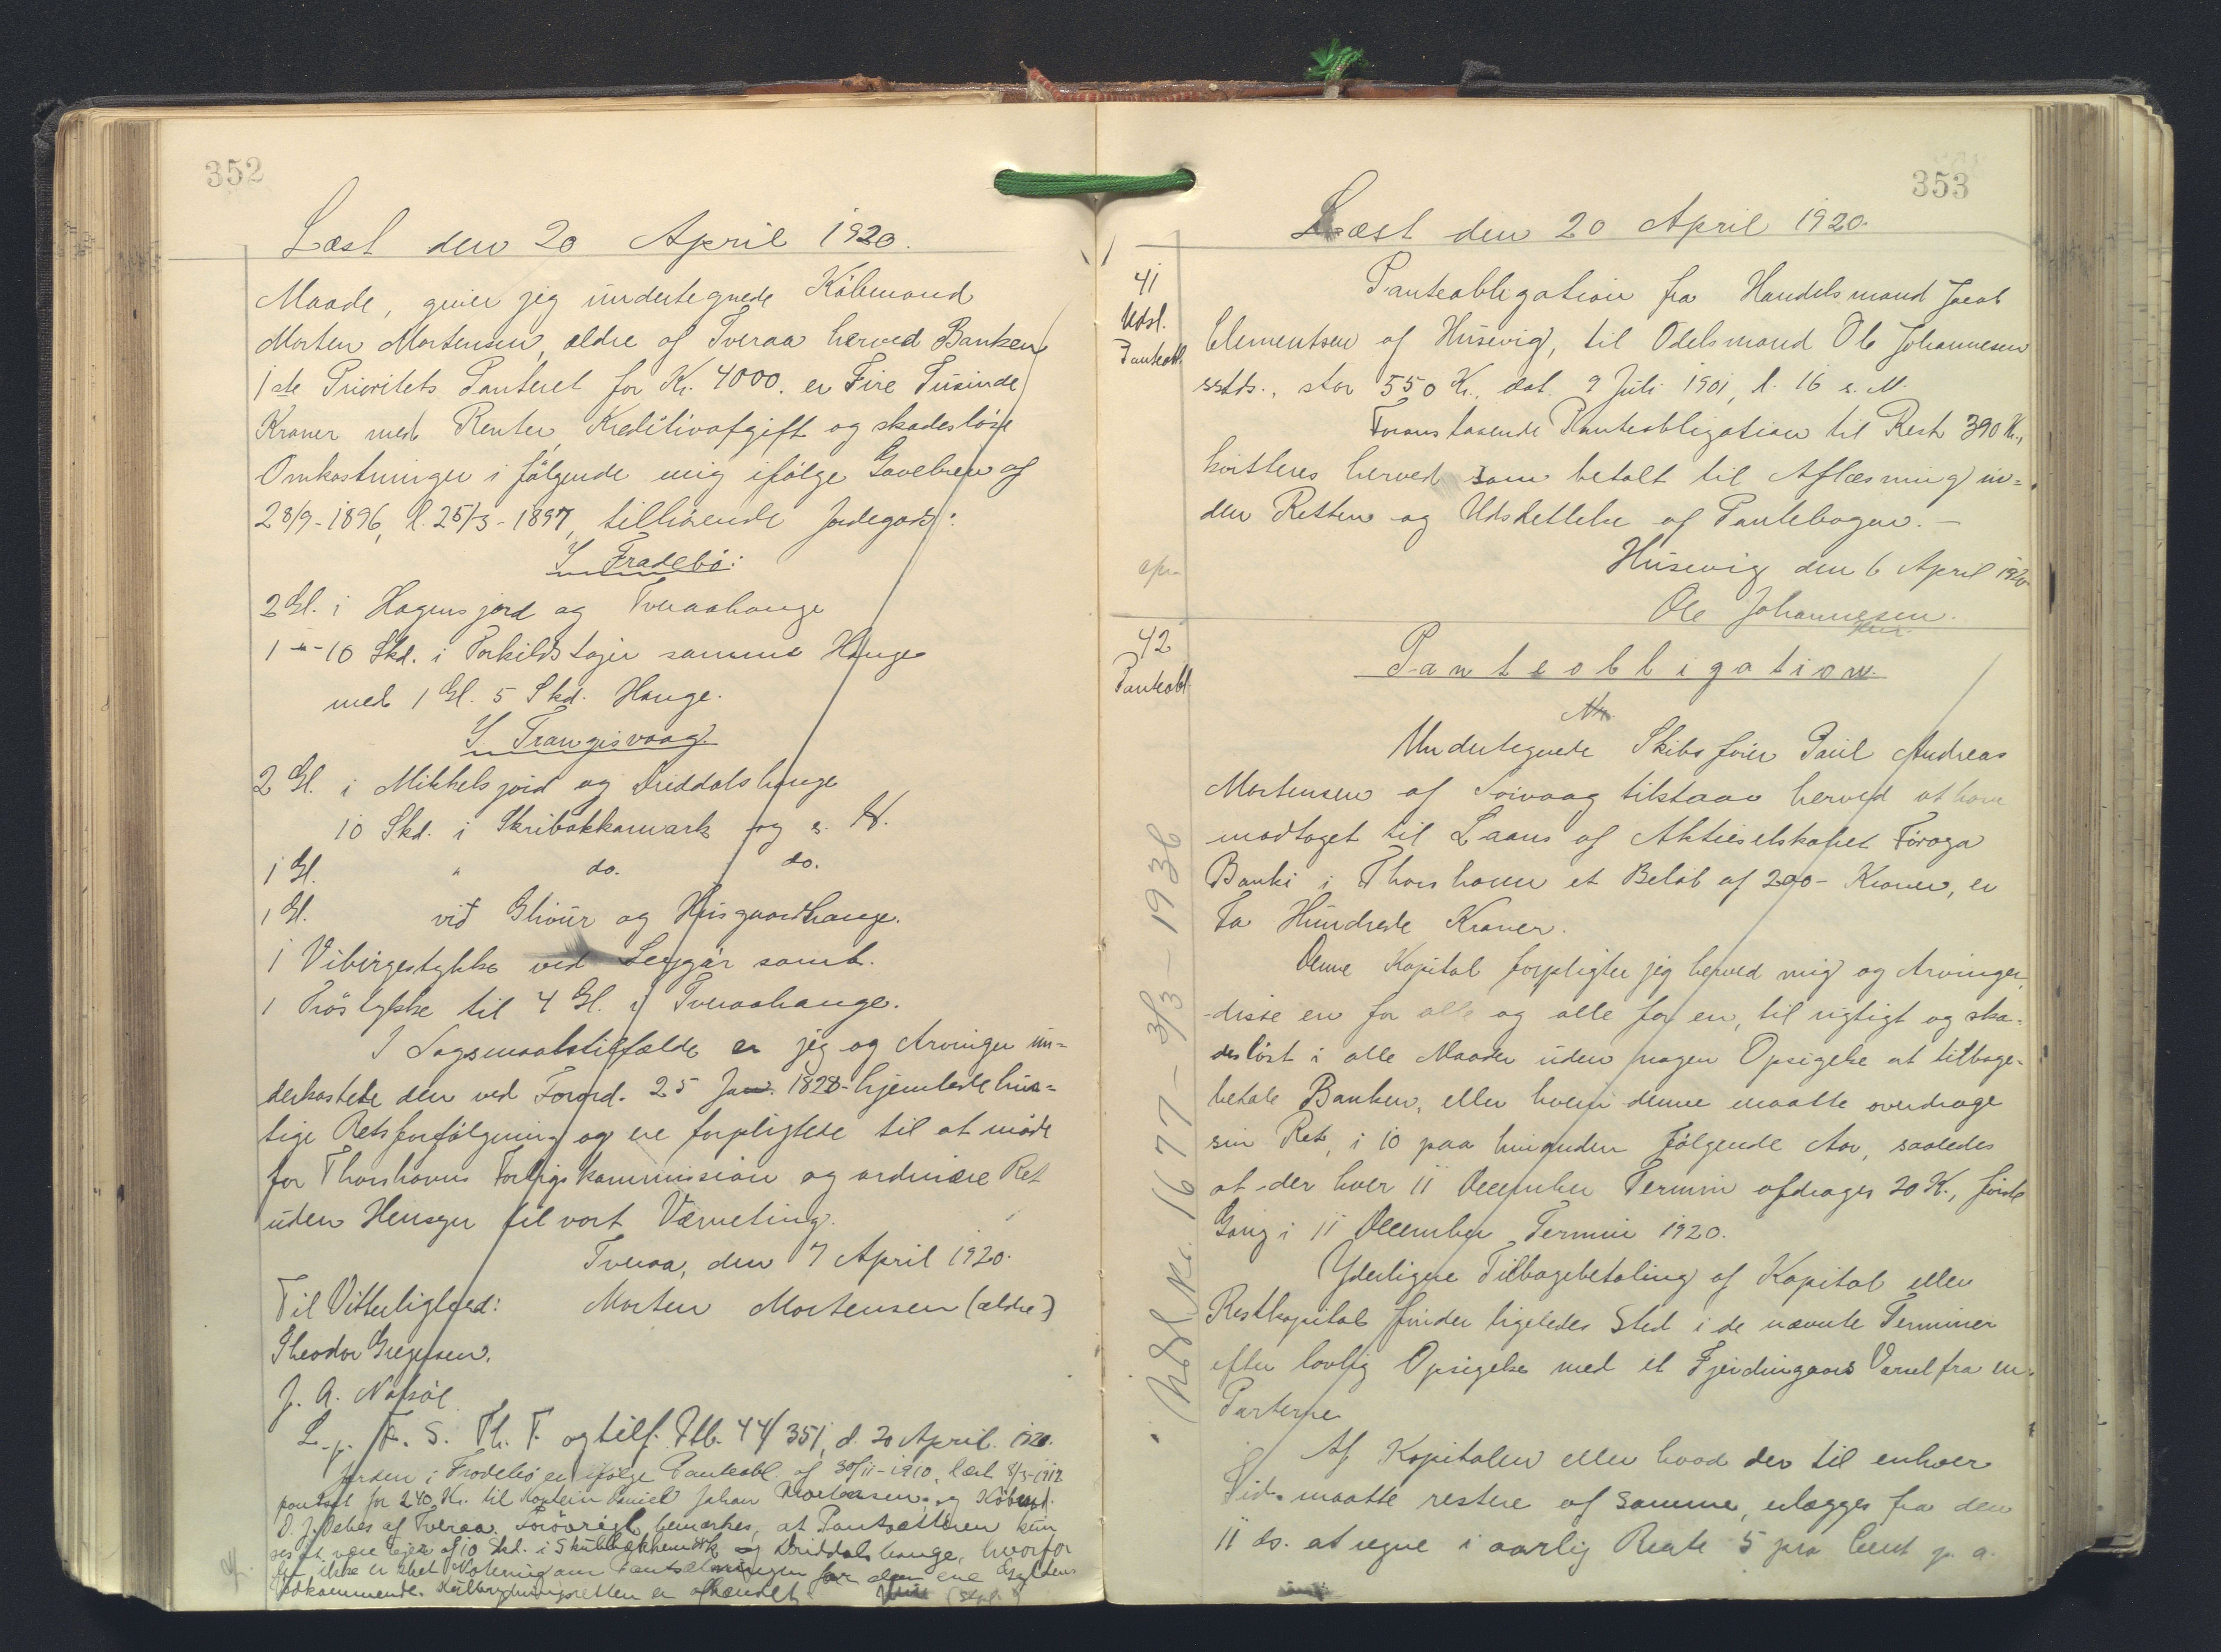 352
Læst den 20 April 1920.
Maade, giver jeg undertegnede Købmand
Morten Mortensen, ældre af Tveraa herved Banken
1ste Prioritets Panteret for Kr. 4000. er Fire Tusinde
Kroner med Renter, Kreditivafgift og skadesløse
Omkostninger i følgende mig ifølge Gavebrev af
28/9-1896, l. 25/3-1897, tilhørende Jordegods:
I Frodebø:
2 Gl. i Hagensjord og Tveraahauge
1 - " - 10 Skd. i Torkilds tajer samme Hauge
med 1 Gl. 5 Skd. Hauge.
I Trangisvaag.
2 Gl. i Mikkelsjord og Driddalshauge
10 Skd. i Skribakkamark og s. H.
1 Gl. " do. do.
1 Gl. við Gliour og Husgaardhauge.
1 Vibirgestykke ved samt.
1 Trøstykke til 4 Gl. i Tveraahauge.
I Søgsmaalstilfælde er jeg og Arvinger un=
derkastede den ved Forord. 25 Jan. 1828 hjemlede hur=
tige Retsforfølgning og ere forpligtede til at møde
for Thorshavns Forligskommission og ordinære Ret
uden Hensyn til vort Værneting.
Tveraa, den 7 April 1920.
Til Vitterlighed: Morten Mortensen (ældre)
Theodor Gregersen.
J. A.
L. i. F. S. Th. T. og tilf. Ptb. 44/351, d. 20 April. 1920.
Jorden i Frodebø er ifølge Panteobl. af 30/11-1910, læst 8/3-1912
pantsat for 240 Kr. til Kaptein Daniel Johan Mortensen, og Købmd.
D. J. Debes af Tveraa. Forøvrigt bemærkes, at Pantsætteren kun
ses at være ejer af 10 Skd. i Skribbakkemark og Driddalshauge, hvorfor
der ikke er sket Notering om Pantsætningen for den ene Gyldens
Vedkommende. er afhændet.
353
Læst den 20 April 1920.
41
Udsl.
Panteobl.
Panteobligation fra Handelsmand Jacob
Clementsen af Husevig, til Odelsmand Ole Johannesen
sstds., stor 550 Kr., dat. 9 Juli 1901, l. 16 s. M.
Foranstaaende Panteobligation til Rest 390 Kr.,
kvitteres herved som betalt til Aflæsning in=
den Retten og Udslettelse af Pantebogen. -
Husevig den 6 April 1920
Ole Johannesen.
42
Panteobl.
Panteobligation.
Undertegnede Skibsfører Paul Andreas
Mortensen af tilstaar herved at have
modtaget til Laans af Aktieselskabet Føroya
Banki i Thorshavn et Beløb af 200- Kroner, er
To Hundrede Kroner.
Denne Kapital forpligter jeg herved mig og Arvinger,
disse en for alle og alle for en, til rigtigt og ska-
desløst i alle Maader uden nogen Opsigelse at tilbage-
betale Banken, eller hvem denne maatte overdrage
sin Ret, i 10 paa hinanden følgende Aar, saaledes
at der hver 11 December Termin afdrages 20 K., første
Gang i 11 December Termin 1920.
Yderligere Tilbagebetaling af Kapital eller
Restkapital finder ligeledes Sted i de nævnte Terminer
efter lovlig Opsigelse med et Fjerdingaars Varsel fra en.
Parterne
Af Kapitalen eller hvad der til enhver
Tid maatte restere af samme, erlægges fra den
11 ds. at regne i aarlig Rente 5 pro Cent p. a.
Udsl. No. 1677 - 3/3 - 1936